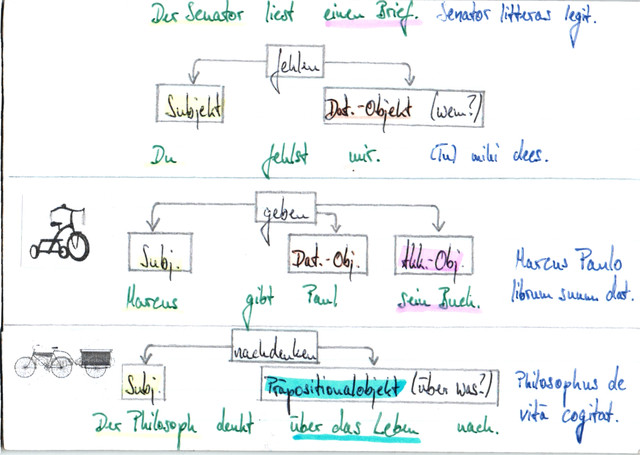 Der Senator liest einen Brief. Senator litteras legit.
fehlen
Subjekt Dat.-Objekt (wem?)
Du fehlst mir. (Tu) mihi dees.
geben
Subj. Dat.-Obj. Akk.-Obj.
Marcus gibt Paul sein Buch.
Marcus Paulo
librum suum dat.
nachdenken
Subj. Präpositionalobjekt (über was?)
Der Philosoph denkt über das Leben nach.
Philosophus de
vitā cogitat.